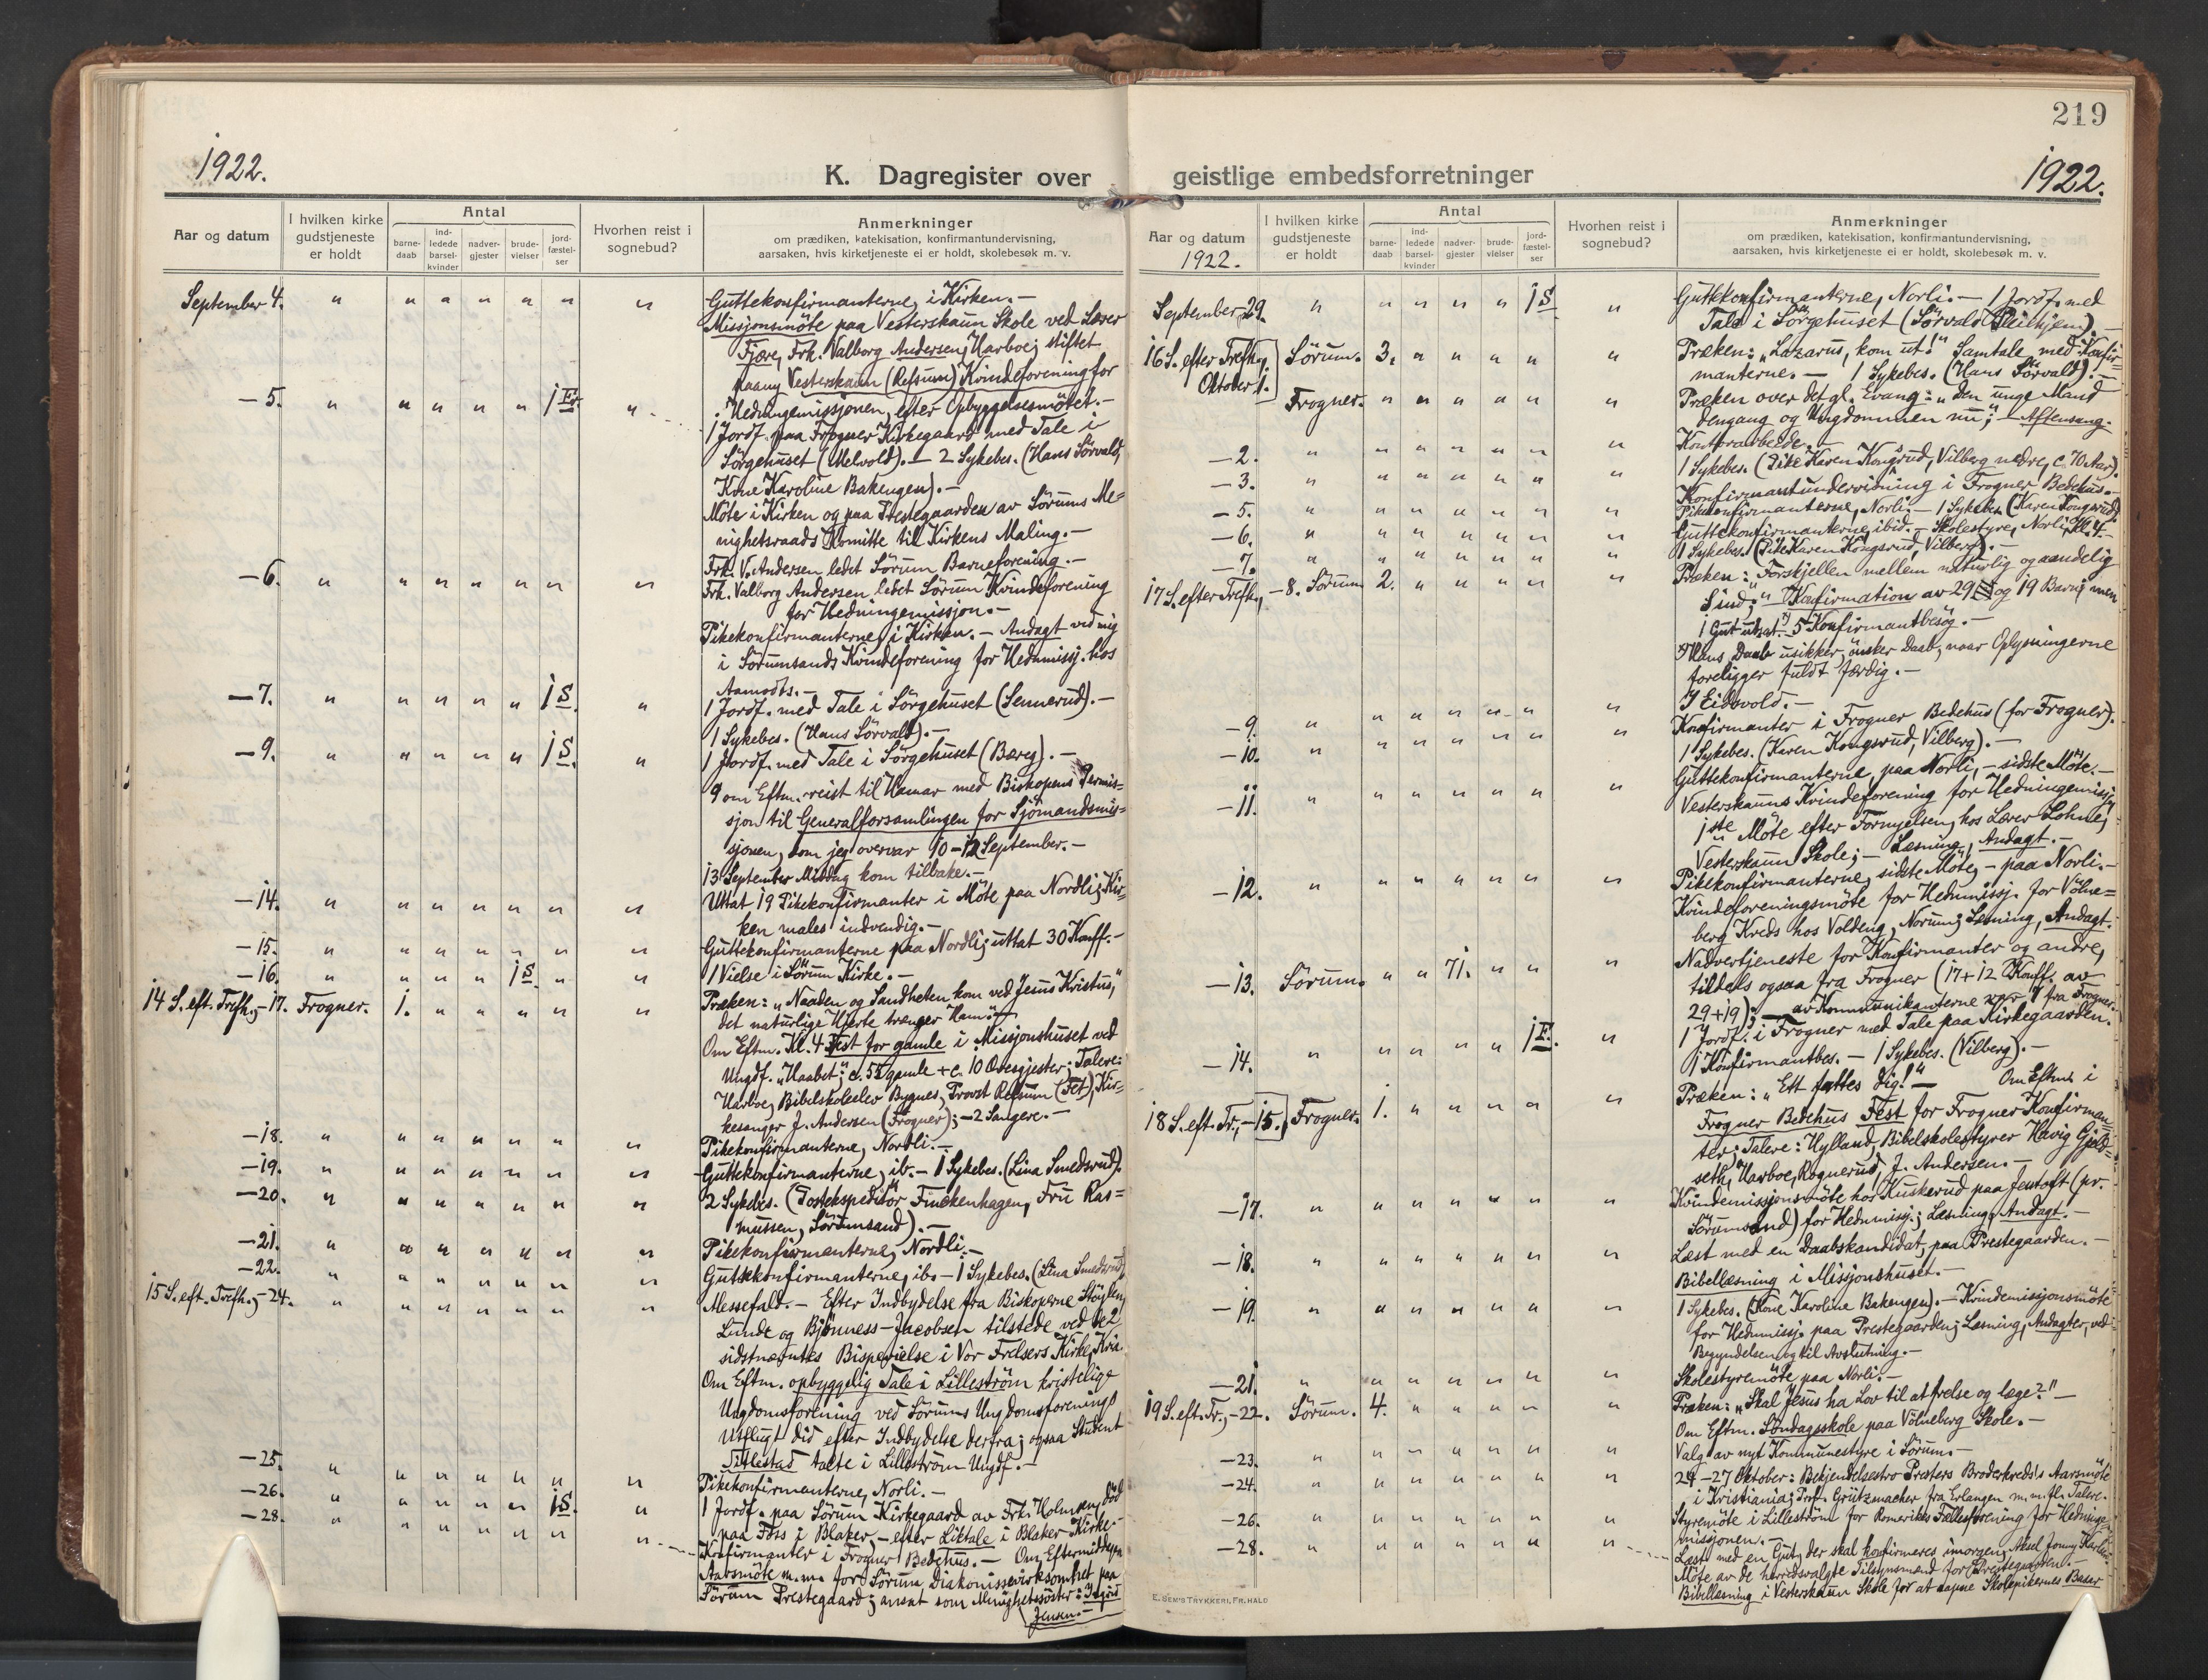 219
1922.
K. Dagregister over
geistlige embedsforretninger
1922.
Aar og datum
I hvilken kirke gudstjeneste er holdt
Antal
barne-daab
ind-ledede barsel-kvinder
nadver-gjester
brude-vielser
jord-fæstel-ser
Hvorhen reist i sognebud?
Anmerkninger
om prædiken, katekisation, konfirmantundervisning,
aarsaken, hvis kirketjeneste ei er holdt, skolebesøk m. v.
September 4. " " " " " " " Guttekonfirmanterne, i Kirken.—
Missjonsmöte paa Vesterskaun Skole ved Lærer
Fjære, Frk. Valborg Andersen, Harboe; stiftet
paany Vesterskaun (Refsum) Kvindeforening for
Hedningemissjonen, efter Opbyggelsesmötet.—
— 5. " " " " " 1 F. " 1 Jordf. paa Frogner Kirkegaard med Tale i
Sörgehuset (Melvold).— 2 Sykebes. (Hans Sörvald,
Kone Karoline Bakengen).—
Möte i Kirken og paa Prestegaarden av Sörums Me=
nighetsraads Komitte til Kirkens Maling.—
Frk. V. Andersen ledet Sörum Barneforening.—
— 6. " " " " " " " Frk. Valborg Andersen ledet Sörum Kvindeforening
for Hedningemissjon.—
Pikekonfirmanterne, i Kirken.— Andagt ved mig
i Sörumsands Kvindeforening for Hednmissj. hos
Aamodts.—
— 7. " " " " " 1 S. " 1 Jordf. med Tale i Sörgehuset (Sennerud).—
1 Sykebes. (Hans Sörvald).—
— 9. " " " " " 1 S. " 1 Jordf. med Tale i Sörgehuset (Bæreg).—
9 om Eftm. reist til Hamar med Biskopens Permis=
sjon til Generalforsamlingen for Sjömandsmis=
sjonen, som jeg overvar 10–12 September.—
13 September Middag kom tilbake.—
— 14. " " " " " " " Uttat 19 Pikekonfirmanter i Möte paa Nordli; Kir=
ken males indvendig.—
— 15. " " " " " " " Guttekonfirmanterne paa Nordli; uttat 30 Konff.—
— 16. " " " " 1 S. " " 1 Vielse i Sörum Kirke.—
14 S. eft. Trefh., — 17. Frogner. 1. " " " " " Præken: „Naaden og Sandheten kom ved Jesus Kristus,"
det naturlige Hjerte trænger Ham."
Om Eftm. Kl. 4 Fest for gamle i Missjonshuset ved
Ungdf. „Haabet"; c. 55 gamle + c. 10 Andre gjester; Talere:
Harboe, Bibelskoleelev Bygnes, Provst Refsum (Fet), Kir=
kesanger J. Andersen (Frogner);— 2 Sangere.—
— 18. " " " " " " " Pikekonfirmanterne, Nordli.—
— 19. " " " " " " " Guttekonfirmanterne, ib.— 1 Sykebes. (Lina Smedsrud).
— 20. " " " " " " " 2 Sykebes. (Postekspeditör Finckenhagen, Fru Ras=
mussen, Sörumsand).—
— 21. " " " " " " " Pikekonfirmanterne, Nordli.—
— 22. " " " " " " " Guttekonfirmanterne, ib.— 1 Sykebes. (Lina Smedsrud)
15 S. eft. Trefh., — 24. " " " " " " " Messefald.— Efter Indbydelse fra Biskoperne Stöylen,
Lunde og Bjönness-Jacobsen tilstede ved de 2
sidstnævntes Bispevielse i Vor Frelsers Kirke, Kria.
Om Eftm. opbyggelig Tale i Lilleström kristelige
Ungdomsforening ved Sörums Ungdomsforenings
Utflugt did efter Indbydelse derfra; ogsaa Student
Tillestad talte i Lilleström Ungdf.—
— 25. " " " " " " " Pikekonfirmanterne, Norli.—
— 26. " " " " " 1 S. " 1 Jordf. paa Sörum Kirkegaard av Frk. Holmsen, död
paa Foss i Blaker,— efter Liktale i Blaker Kirke.—
— 28. " " " " " " " Konfirmanter i Frogner Bedehus.— Om Eftermiddagen
Aarsmöte m.m. for Sörum Diakonissevirksomhet paa
Sörum Prestegaard; ansat som Menighetssöster: Ingrid
Jensen.—
Aar og datum
1922.
I hvilken kirke gudstjeneste er holdt
Antal
barne-daab
ind-ledede barsel-kvinder
nadver-gjester
brude-vielser
jord-fæstel-ser
Hvorhen reist i sognebud?
Anmerkninger
om prædiken, katekisation, konfirmantundervisning,
aarsaken, hvis kirketjeneste ei er holdt, skolebesøk m. v.
September 29. " " " " " 1 S. " Guttekonfirmanterne, Norli.— 1 Jordf. med
Tale i Sörgehuset (Sörvald).—
16 S. efter Trefh., Oktober 1. Sörum. 3. " " " " " Præken: „Lazarus, kom ut!" Samtale med Konfir=
manterne.— 1 Sykebes. (Hans Sörvald).—
Frogner. " " " " " " Præken over det gl. Evang: „den unge Mand
dengang og Ungdommen nu;"— Aftensang.
— 2. " " " " " " " Kontorarbeide.—
— 3. " " " " " " " 1 Sykebes. (Pike Karen Kongsrud, Vilberg nedre, c. 70 Aar).
Konfirmantundervisning i Frogner Bedehus.—
— 5. " " " " " " " Pikekonfirmanterne, Norli.— 1 Sykebes. (Karen Kongsrud).
— 6. " " " " " " " Guttekonfirmanterne, ibid.— Skolestyre, Norli, Kl. 4.—
— 7. " " " " " " " 1 Sykebes. (Pike Karen Kongsrud, Vilberg).—
17 S. efter Trefh., — 8. Sörum 2. " " " " " Præken: „Forskjellen mellem naturlig og aandelig
Sind;" Konfirmation av 29 og 19 Barn; men
1 Gut utsat.*) 5 Konfirmantbesög.—
*) Hans Daab usikker, önsker Daab, naar Oplysningerne
foreligger fuldt færdig.—
— 9. " " " " " " " I Eidsvold.—
— 10. " " " " " " " Konfirmanter i Frogner Bedehus (for Frogner).
1 Sykebes. (Karen Kongsrud, Vilberg).—
Guttekonfirmanterne, paa Norli,— sidste Möte.—
— 11. " " " " " " " Vesterskauns Kvindeforening for Hedningemissj.
1ste Möte efter Fornyelsen, hos Lærer Lohne,
Vesterskaun Skole;— Læsning, Andagt.—
— 12. " " " " " " " Pikekonfirmanterne, sidste Möte,— paa Norli.—
Kvindeforeningsmöte for Hednmissj. for Völne=
berg Kreds hos Voldeng, Norum; Læsning, Andagt.
— 13. Sörum. " " 71. " " " Nadvertjeneste for Konfirmanter og andre,
tildels ogsaa fra Frogner (17+12 Konff. av
29+19);— av Kommunikanterne var 9 fra Frogner.
— 14. " " " " " 1 F. " 1 Jordf. i Frogner med Tale paa Kirkegaarden.
1 Konfirmantbes.— 1 Sykebes. (Vilberg).—
18 S. eft. Tr., — 15. Frogner. 1. " " " " " Præken: „Ett fattes dig!"— Om Eftm. i
Frogner Bedehus Fest for Frogner Konfirman=
ter; Talere: Hylland, Bibelskolestyrer Havig Gjel=
seth, Harboe, Rognerud, J. Andersen.—
— 17. " " " " " " " Kvindemissjonsmöte hos Kuskerud paa Jentoft (pr.
Sörumsand) for Hednmissj.; Læsning, Andagt.—
— 18. " " " " " " " Læst med en Daabskandidat, paa Prestegaarden.—
Bibellæsning i Missjonshuset.—
— 19. " " " " " " " 1 Sykebes. (Kone Karoline Bakengen).— Kvindemissjonsmöte
for Hednmissj. paa Prestegaarden; Læsning, Andagter, ved
Begyndelsen og til Avslutning.—
— 21. " " " " " " " Skolestyremöte paa Norli.—
19 S. eft. Tr., — 22. Sörum. 4. " " " " " Præken: „Skal Jesus ha Lov til at frelse og læge?"—
Om Eftm. Söndagsskole paa Völneberg Skole.—
— 23. " " " " " " " Valg av nyt Kommunestyre i Sörum.—
— 24. " " " " " " " 24–27 Oktober: Bekjendelsestro Presters Broderkreds's Aarsmöte
i Kristiania; Prof. Grützmacher fra Erlangen m.m. fl. Talere.
— 26. " " " " " " " Styremöte i Lilleström for Romerikes Fællesforening for Hedninge=
missjonen.—
— 28. " " " " " " " Læst med en Gut, der skal konfirmeres imorgen, Aksel Jonny
Möte av de herredsvalgte Tilsynsmænd for Prestegaarden.—
Bibellæsning i Vesterskaun Skole for at aapne Skolepikernes Basar
E. SEM'S TRYKKERI, FR.HALD